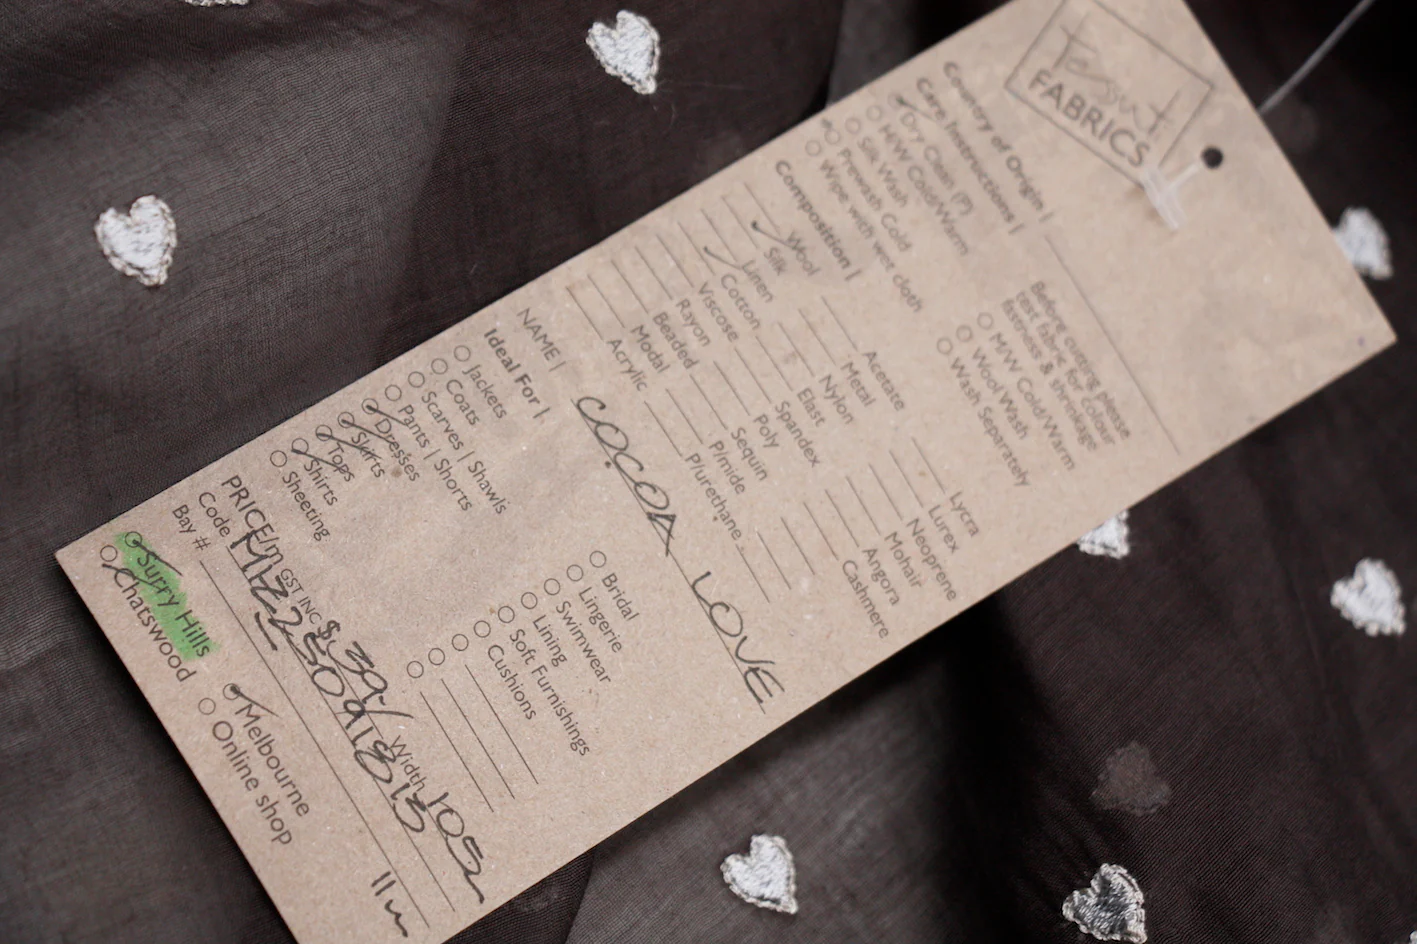 Tessuti
FABRICS
Country of Origin |
Care Instructions |
Dry Clean (P)
M/W Cold/Warm
Silk Wash
Prewash Cold
Wipe with wet cloth
Before cutting please
test fabric for colour
fastness & shrinkage
M/W Cold/Warm
Wool Wash
Wash Separately
Composition |
Wool
Silk
Linen
Cotton
Viscose
Rayon
Beaded
Modal
Acrylic
Acetate
Metal
Nylon
Elast
Spandex
Poly
Sequin
P/mide
P/urethane
Lycra
Lurex
Neoprene
Mohair
Angora
Cashmere
NAME | COCOA LOVE
Ideal For |
Jackets
Coats
Scarves | Shawls
Pants | Shorts
Dresses
Skirts
Tops
Shirts
Sheeting
Bridal
Lingerie
Swimwear
Lining
Soft Furnishings
Cushions
PRICE/m GST INC $39/ Width 105
Code
Bay #
11m
Surry Hills
Chatswood
Melbourne
Online shop